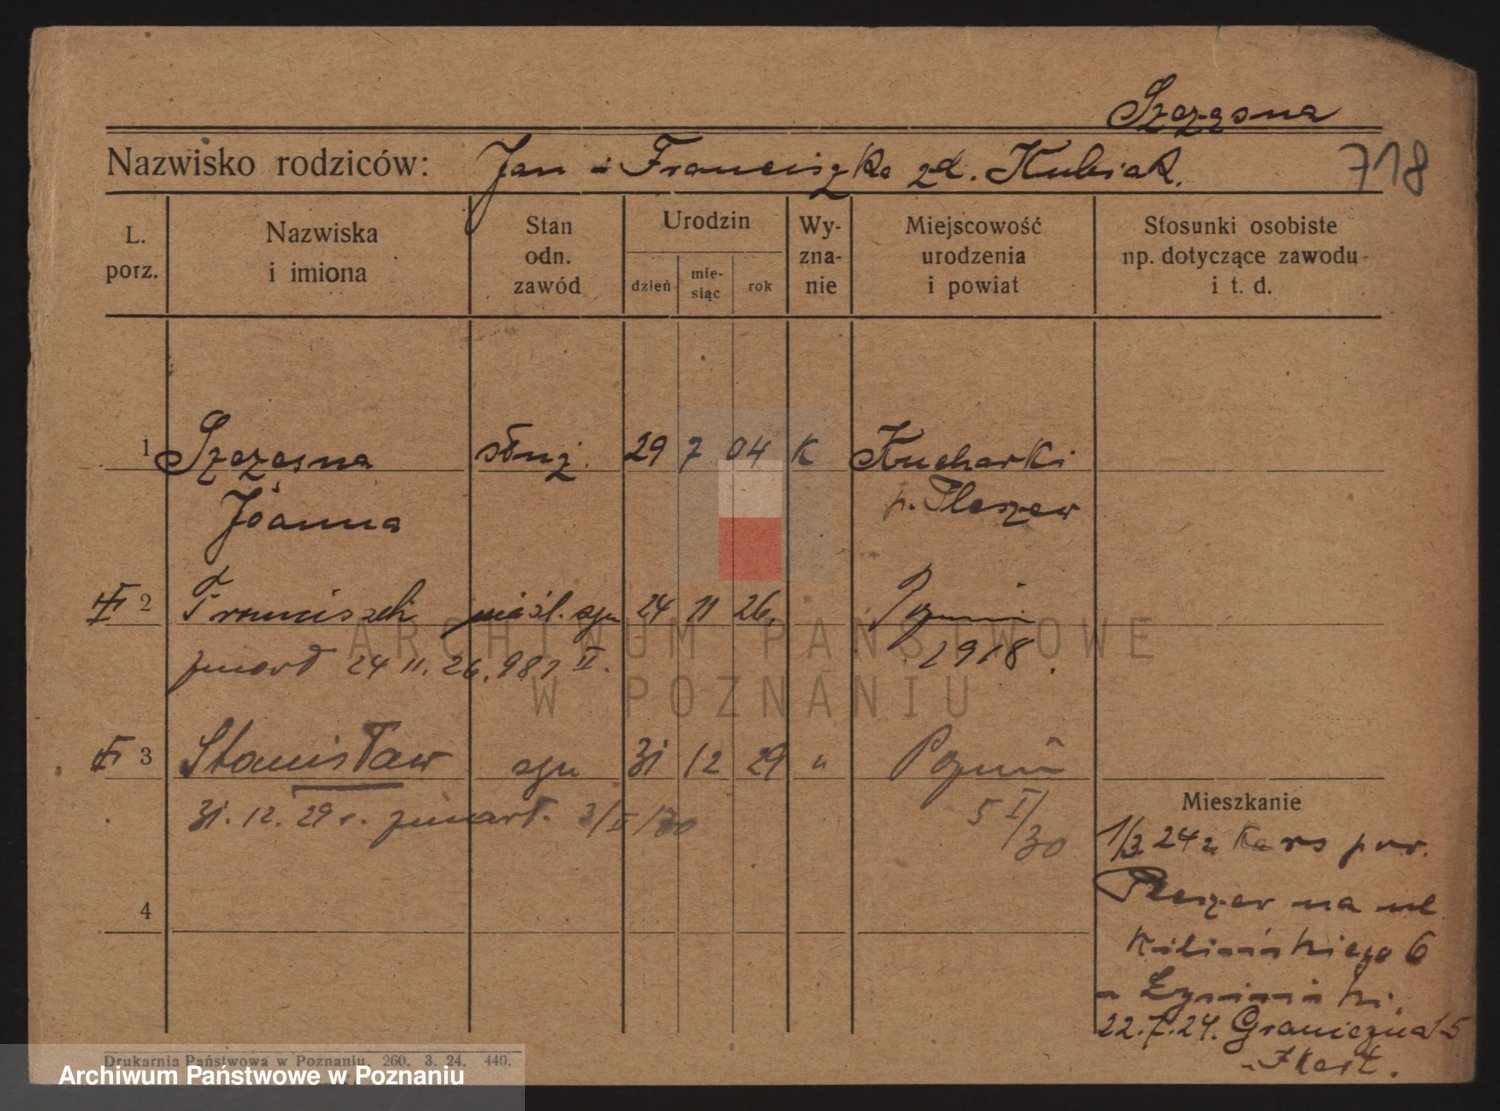 Szczęsna
Nazwisko rodziców: Jan i Franciszka zd. Kubiak.
718
L. porz.
Nazwiska i imiona
Stan odn. zawód
Urodzin
dzień
mie-siąc
rok
Wy-zna-nie
Miejscowość urodzenia i powiat
Stosunki osobiste np. dotyczące zawodu i t. d.
1 Szczęsna służ. 29 7 04 K Kucharki
Joanna p. Pleszew
2 Franciszek nieśl. syn 24 11 26.
zmarł 24 11. 26. 1918.
3 Stanisław syn 31 12 29 "
31. 12. 29 r. zmarł. 5 I/30
Mieszkanie
4
1/3. 24 z Kars pow.
Pleszew na ul
Kilińskiego 6
22.7.24. Graniczna 15
Drukarnia Państwowa w Poznaniu. 260. 3. 24. 440.
ARCHIWUM PAŃSTWOWE
W POZNANIU
Archiwum Państwowe w Poznaniu